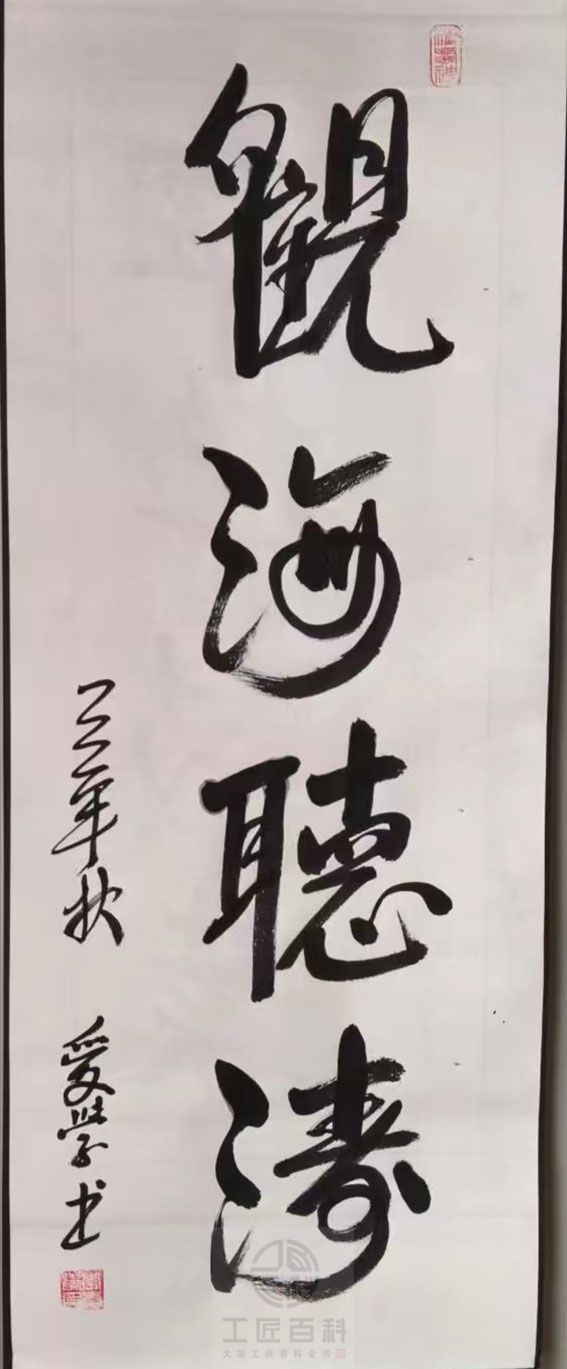 觀海聽濤
二〇二二年秋 爱學书
工匠百科
大国工匠百科全书